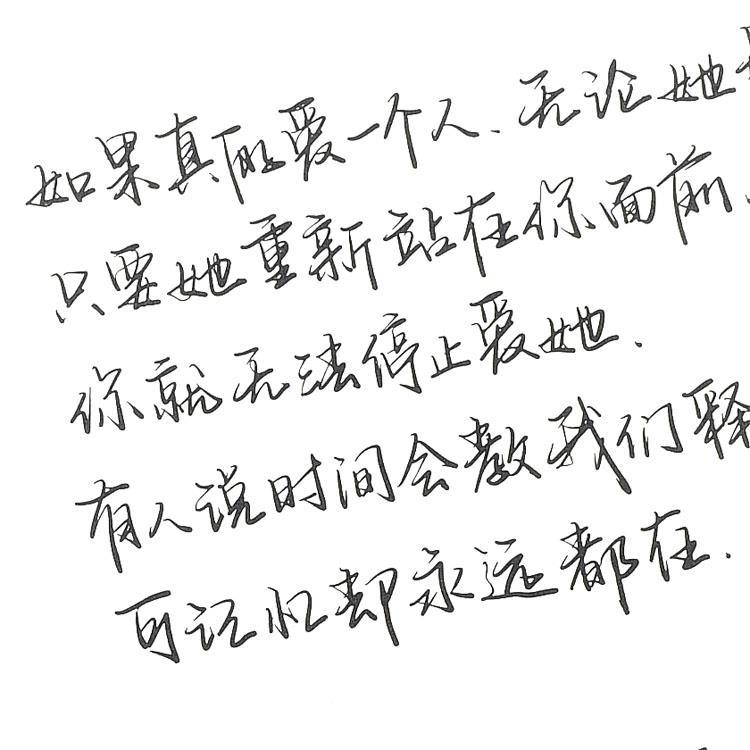 如果真的爱一个人、无论她
只要她重新站在你面前、
你就无法停止爱她.
有人说时间会教我们释
可记忆却永远都在.